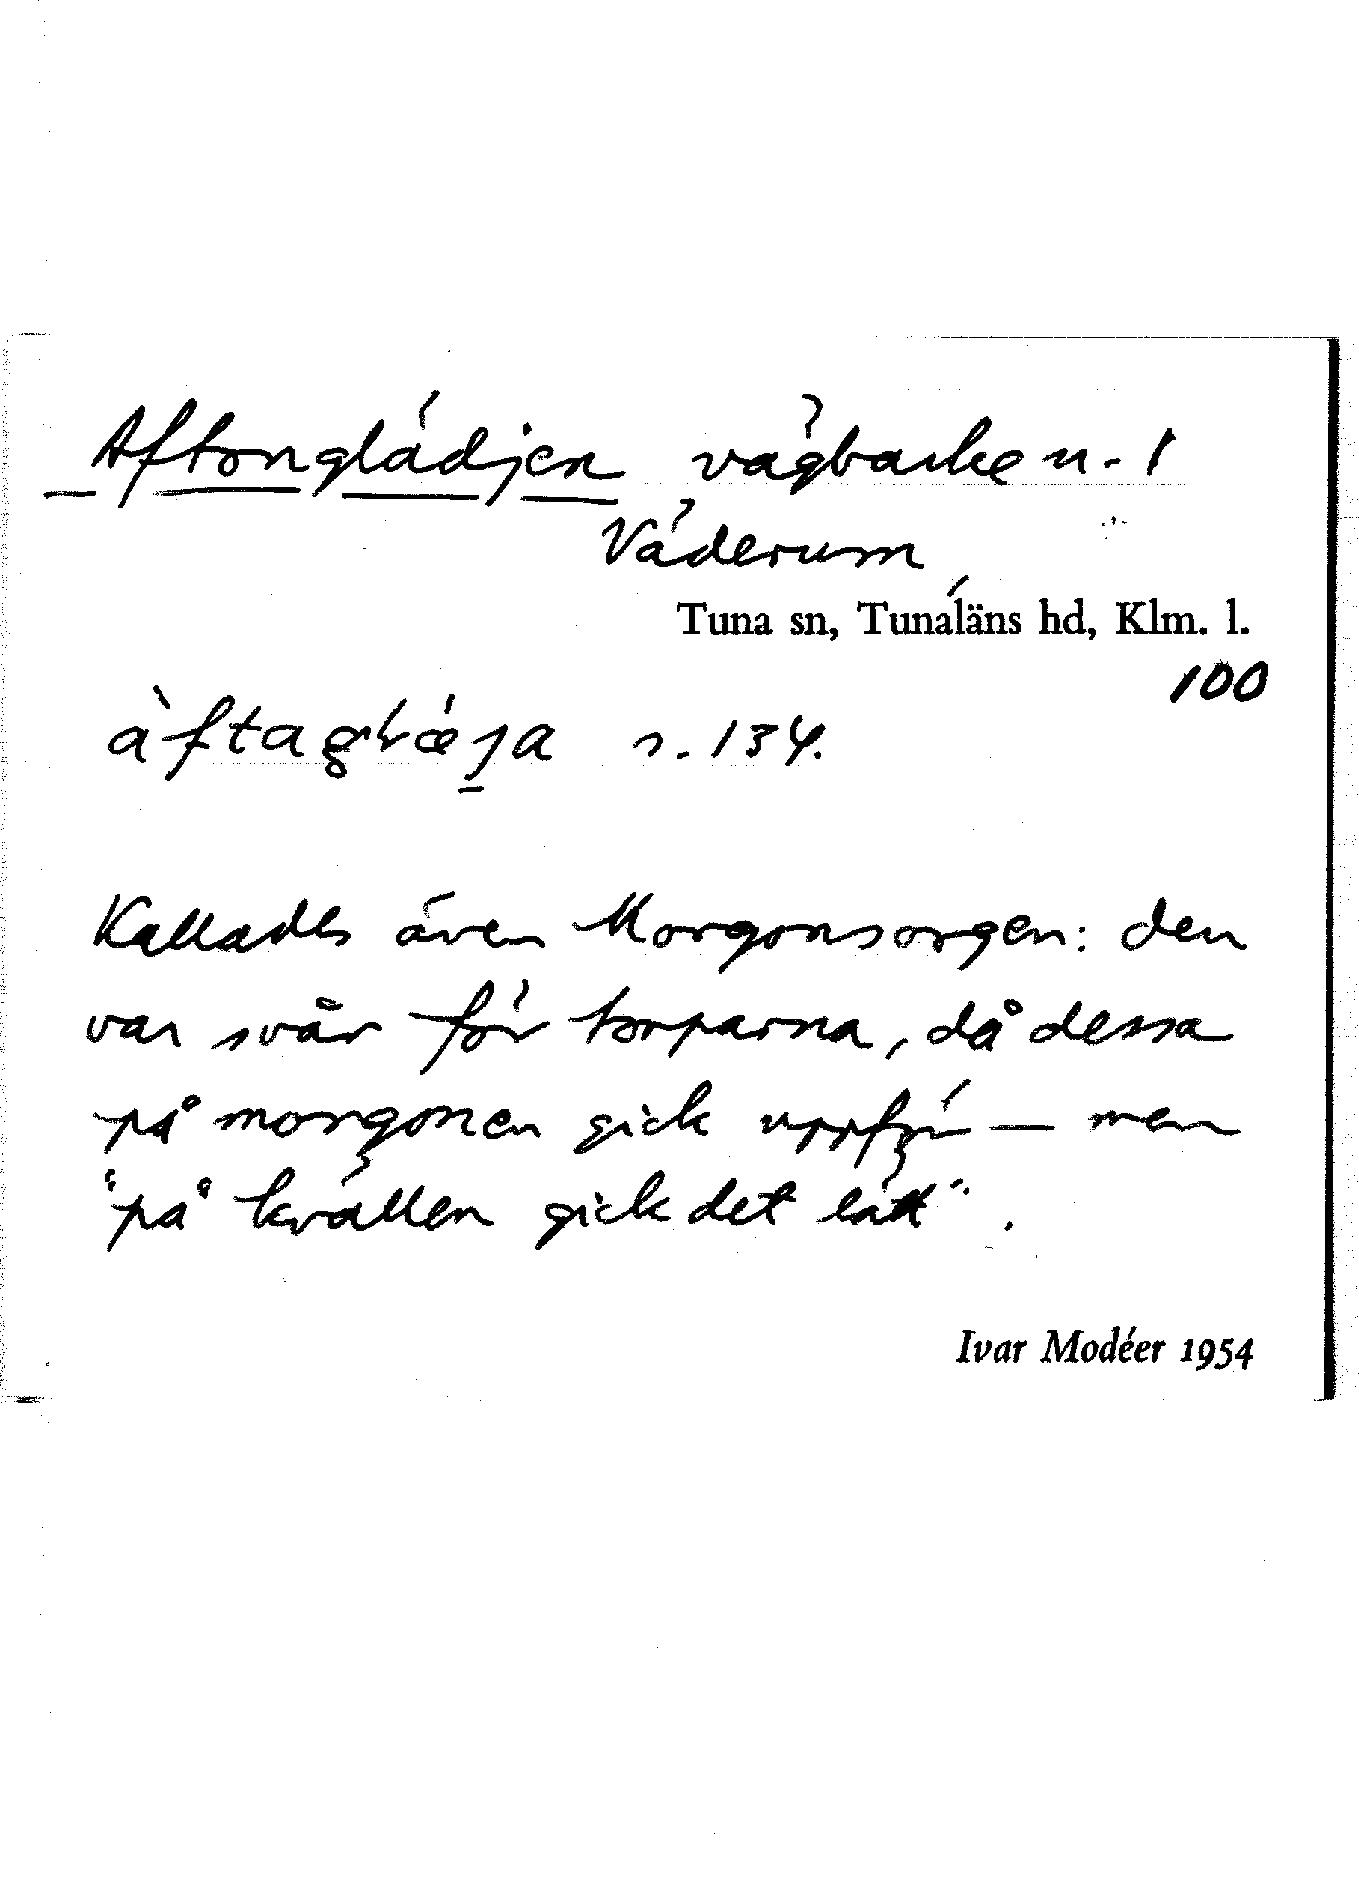 Aftonglädjen vägbacke n. 1
Väderum
Tuna sn, Tunaläns hd, Klm. l.
100
s. 134.
Kallades även Morgonsorgen: den
var svår för torparna, då dessa
på morgonen gick uppför — men
"på kvällen gick det lätt".
Ivar Modéer 1954